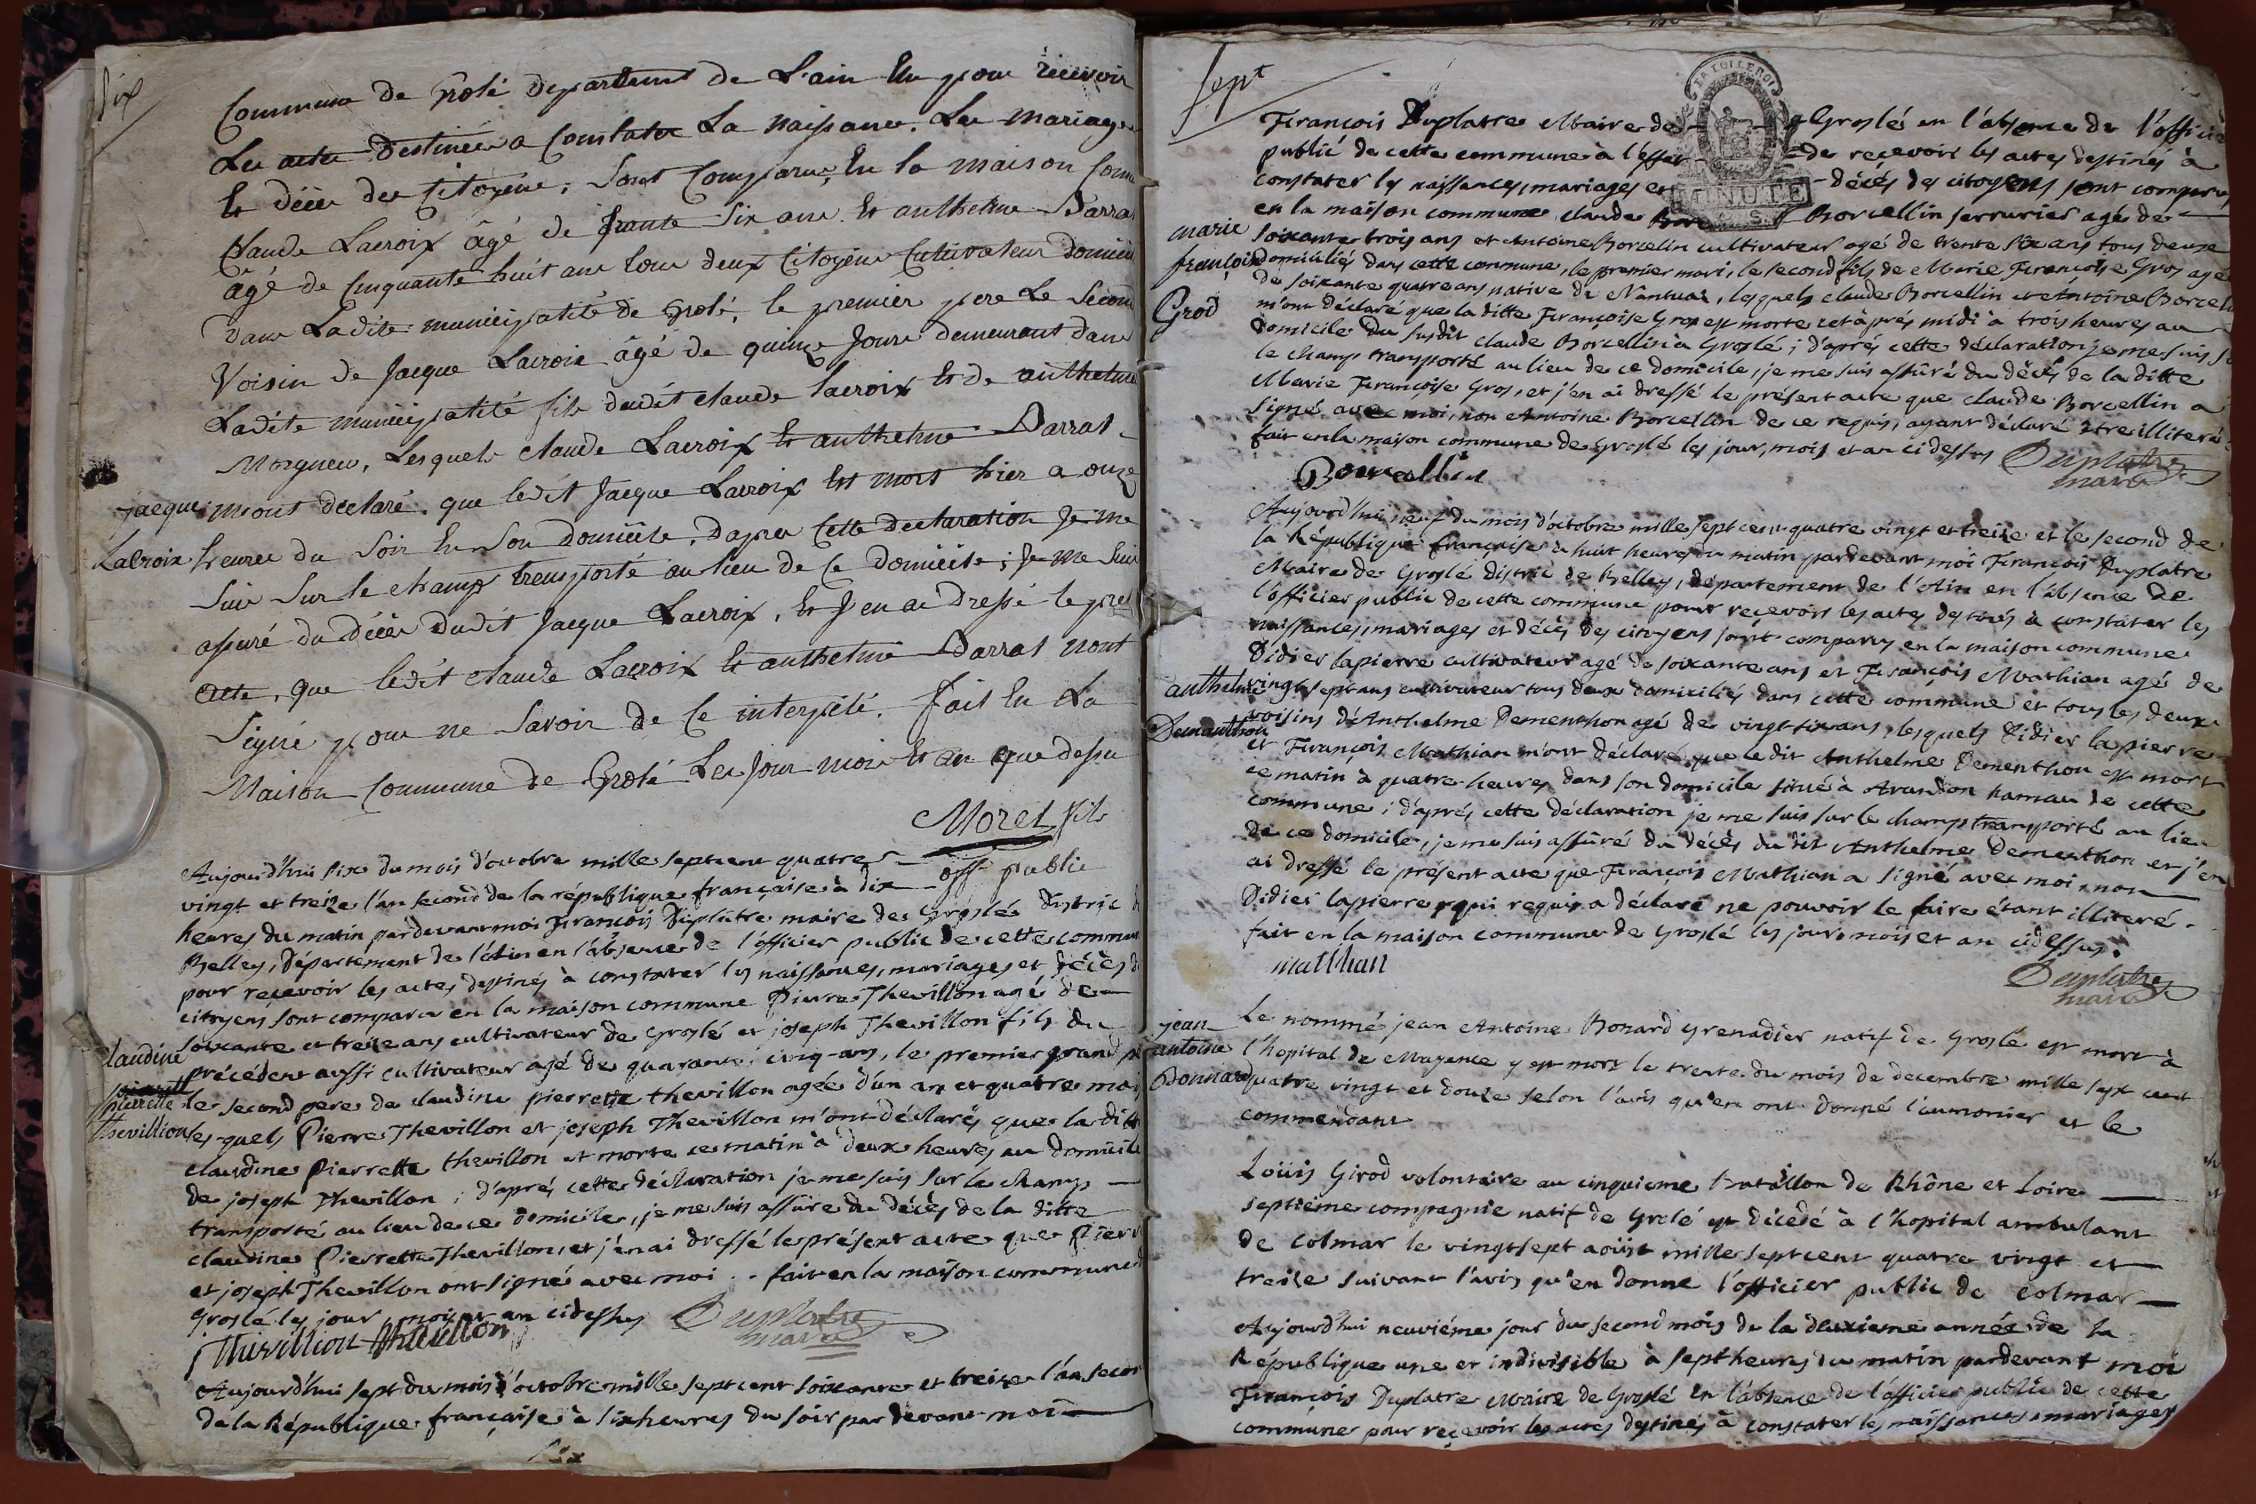 six
Commune de Grolé departement de L'ain Elu pour recevoir
Les actes destinées a Constater La naissance. Les mariages
Et décès des Citoyens, Sont Comparus, En la maison Comm
Claude Lacroix âgé de trante six ans. Et anthelme Darra
âgé de Cinquante huit ans tous deux Citoyens Cultivateur domicili
dans Ladite municipalité de Grolé, le premier pere Le Second
Voisin de Jacque Lacroix âgé de quinze Jours demeurant dans
Ladite municipalité fils dudit claude lacroix Et de anthelme
Morgneu, Lesquels claude Lacroix Et anthelme Darrat
jacque
mont déclaré. que ledit Jacque Lacroix Est mort hier a onze
Lacroix
heures du Soir En Son Domicile, Dapres Cette declaration Je me
Suis Sur le champ transporté au lieu de Ce domicile; Je me Suis
assuré du décès Dudit Jacque Lacroix, Et J'en ai Dressé le pres
acte, que ledit claude Lacroix Et anthelme Darrat nont
Signé pour ne Savoir de Ce interpelé. Fait En La
Maison Commune de Grolé Les Jour mois Et an que dessu
Moret fils
off. public
Aujourd'hui six du mois d'octobre mille sept cent quatre
vingt et treize l'an second de la république française à dix
heures du matin pardevant moi François Duplatre maire de Groslé distric d
Belley, Département de l'Ain en l'absence de l'officier public de cette commun
pour recevoir les actes destinés à constater les naissances, mariages et décès d
citoyens sont comparu en la maison commune Pierre Thevillon agé de
soixante et treize ans cultivateur de Groslé et joseph Thevillon fils du
Claudine
précédent aussi cultivateur agé de quarante cinq ans, le premier grand p
pierrette
le second pere de claudine pierrette thevillon agée d'un an et quatre mois
Thevillion
lesquels Pierre Thevillon et joseph Thevillon m'ont déclarés que la ditte
claudine Pierrette thevillon est morte ce matin à deux heures au domicile
de joseph Thevillon; d'après cette déclaration je me suis sur le champ
transporté au lieu de ce domicile, je me suis assuré du décès de la ditte
claudine Pierrette Thevillon, et j'en ai dressé le présent acte que Pierr
et joseph Thevillon ont signé avec moi. fait en la maison commune d
Groslé les jour mois et an cidessus Duplatre
maire
Thivillion Thevillon
Aujourd'hui sept du mois d'octobre mille sept cent soixante et treize l'an secon
de la République française à six heures du soir par devant moi
six
sept
François Duplatre Maire de Groslé en l'absence de l'officie
public de cette commune à l'effet de recevoir les actes destinés à
constater les naissances, mariages et décès des citoyens sont comparus
en la maison commune claude Borcellin serrurier agé de
marie
soixante trois ans et Antoine Borcelin cultivateur agé de trente six ans tous deux
françoise
domiciliés dans cette commune, le premier mari, le second fils de Marie Françoise Gros agé
de soixante quatre ans native de Nantua, lesquels claude Borcellin et Antoine Borcel
Grod
m'ont déclaré que la ditte Françoise Gros est morte cet après midi à trois heures au
domicile du susdit claude Borcellin à Groslé; d'après cette déclaration je me suis su
le champ transporté au lieu de ce domicile, je me suis assûré du décès de la ditte
Marie Françoise Gros, et j'en ai dressé le présent acte que claude Borcellin a
signé avec moi, non Antoine Borcellin de ce requis, ayant déclaré être illiteré
fait en la maison commune de Groslé les jour, mois et an cidessus Duplatre
maire
Bourcellin
Aujourd'hui neuf du mois d'octobre mille sept cent quatre vingt et treize et le second de
la République française à huit heures du matin pardevant moi François Duplatre
Maire de Groslé distric de Belley, département de l'Ain en l'absence de
l'officier public de cette commune pour recevoir les actes destinés à constater les
naissances, mariages et décès des citoyens sont comparus en la maison commune
Didier lapierre cultivateur agé de soixante ans et François Mathian agé de
anthelme
vingt sept ans cultivateur tous deux domiciliés dans cette commune et tous les deux
Demanthon
voisins d'Anthelme Dementhon agé de vingt six ans, lesquels Didier lapierre
et François Mathian m'ont déclaré que ledit Anthelme Dementhon est mort
ce matin à quatre heures dans son domicile situé à Arandon hamau de cette
commune; d'après cette déclaration je me suis sur le champ transporté au lieu
de ce domicile, je me suis assûré du décès du dit Anthelme Dementhon et j'en
ai dressé le présent acte que François Mathian a signé avec moi, non
Didier lapierre qui requis a déclaré ne pouvoir le faire étant illiteré.
fait en la maison commune de Groslé les jour mois et an cidessus.
matthian Duplatre
maire
jean
Le nommé jean Antoine Bonard grenadier natif de Groslé est mort à
antoine
l'hopital de Mayence y est mort le trente du mois de decembre mille sept cent
Bonnard
quatre vingt et douze selon l'avis qu'en ont donné l'aumonier et le
commendant
Loüis Girod volontaire au cinquieme Bataillon de Rhône et Loire
septieme compagnie natif de Grolé est décédé à l'hopital ambulant
de Colmar le vingt sept aoüst mille sept cent quatre vingt et
treize suivant l'avis qu'en donne l'officier public de Colmar
Aujourd'hui neuviéme jour du second mois de la deuxieme année de la
République une et indivisible à sept heures du matin pardevant moi
François Duplatre Maire de Groslé en l'absence de l'officier public de cette
commune pour recevoir les actes destinés à constater les naissances, mariages